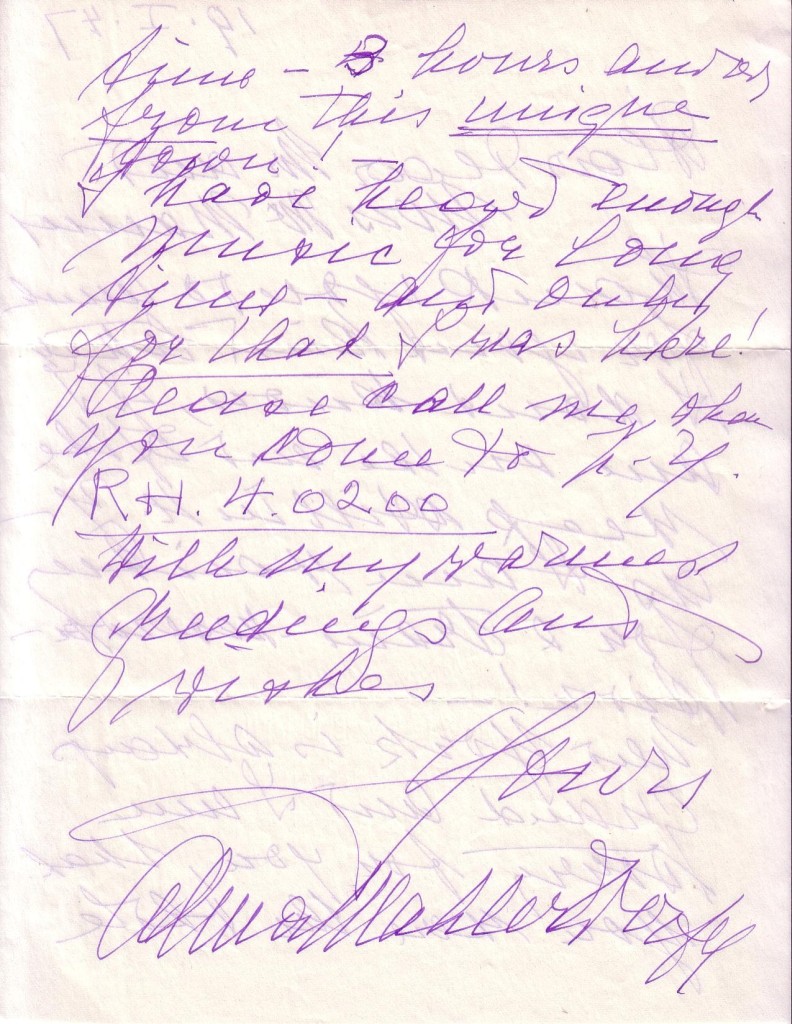 time – 3 hours
from this unique
town!
I have heard enough
music for long
time – and only
for that I was here!
Please call me, when
you come to N.Y.
RH. 4. 0200
With my warmest
greetings and
wishes
Yours
Alma Mahler Werfel